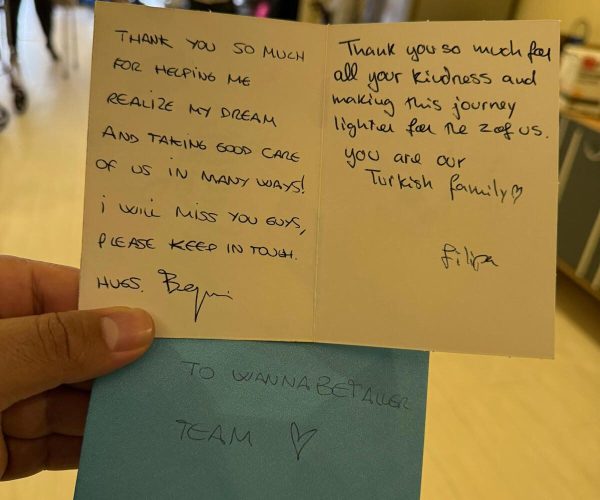 THANK YOU SO MUCH
FOR HELPING ME
REALIZE MY DREAM
AND TAKING GOOD CARE
OF US IN MANY WAYS!
i WILL MISS YOU GUYS,
PLEASE KEEP IN TOUCH.
HUGS.
Thank you so much for
all your kindness and
making this journey
lighter for the 2 of us.
you are our
Turkish family♡
Filipa
TO WANNABETALLER
TEAM ♡